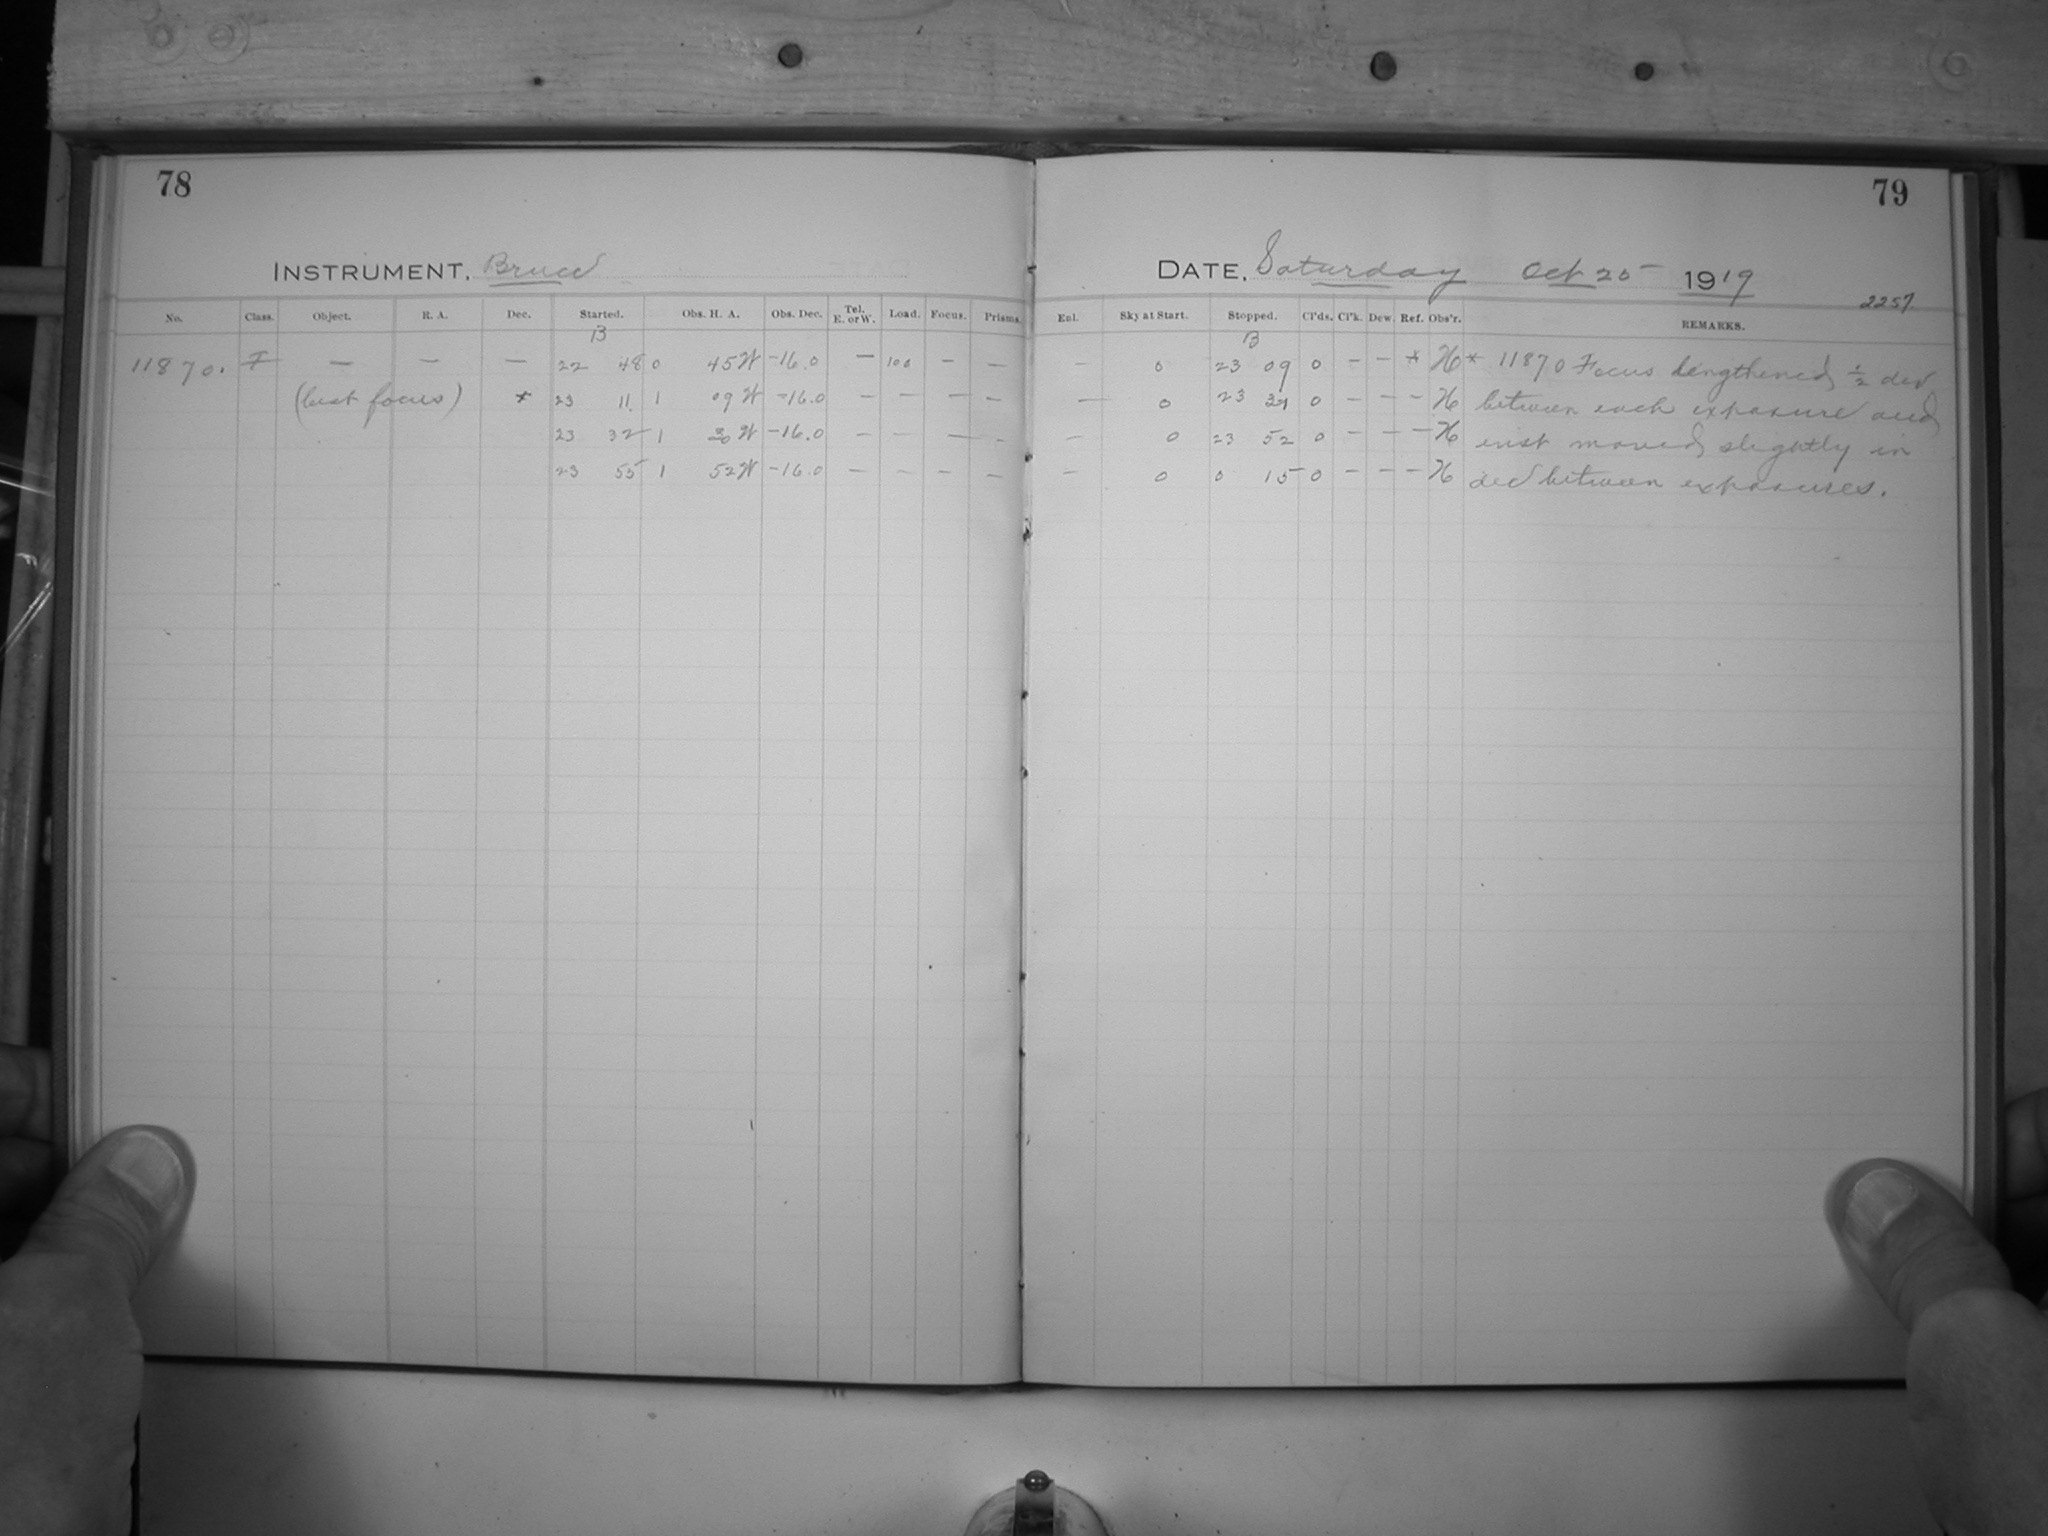 78
INSTRUMENT, Bruce
No. Class. Object. R. A. Dec. Started. Obs. H. A. Obs. Dec. Tel. E. or W. Load. Focus. Prisms.
B
11870. F — — — 22 48 0 45 W -16.0 — 100 — —
(best focus) * 23 11 1 09 W -16.0 — — — —
23 32 1 30 W -16.0 — — — -
23 55 1 52 W -16.0 — - — —
79
DATE, Saturday Oct 25 1919
2257.
Enl. Sky at Start. Stopped. Cl'ds. Cl'k. Dew. Ref. Obs'r. REMARKS.
B
— 0 23 09 0 — — * H * 11870 Focus lengthened ½ div
— 0 23 0 — — — H between each exposure and
— 0 23 52 0 — — — H inst moved slightly in
— 0 0 15 0 — — — H dec between exposures.